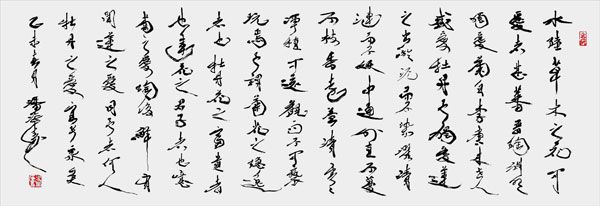 水陸草木之花可
愛者甚蕃晉陶淵明
獨愛菊自李唐來世人
盛愛牡丹予獨愛蓮
之出淤泥而不染濯清
漣而不妖中通外直不蔓
不枝香遠益清亭亭
淨植可遠觀而不可褻
玩焉予謂菊花之隱逸
者也牡丹花之富貴者
也蓮花之君子者也噫
菊之愛陶後鮮有
聞蓮之愛同予者何人
牡丹之愛宜乎眾矣
乙未